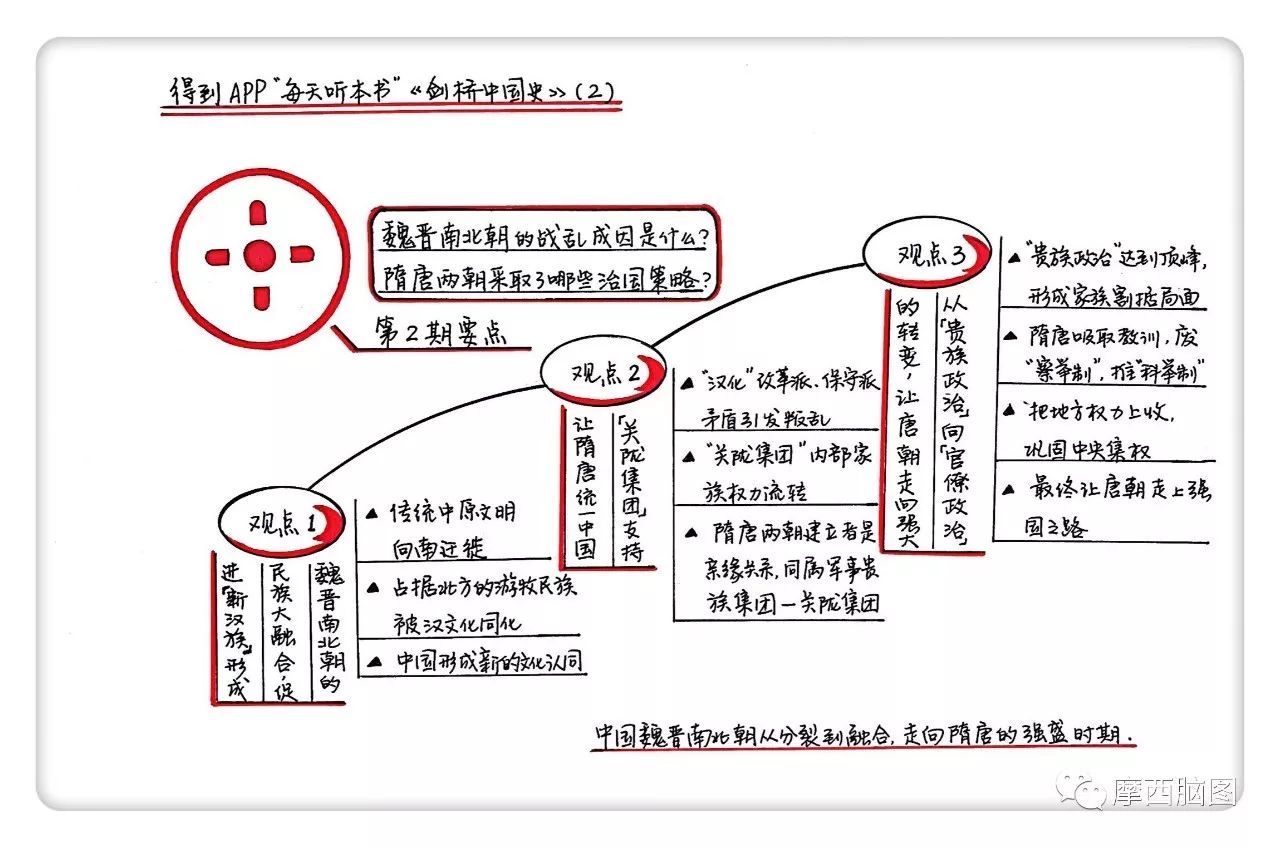 得到APP“每天听本书”《剑桥中国史》(2)
魏晋南北朝的战乱成因是什么?
隋唐两朝采取了哪些治国策略?
第2期要点
观点1
魏晋南北朝的
民族大融合,促
进「新汉族」形成
▲ 传统中原文明
向南迁徙
▲ 占据北方的游牧民族
被汉文化同化
▲ 中国形成新的文化认同
观点2
「关陇集团」支持
让隋唐统一中国
▲ “汉化”改革派、保守派
矛盾引发叛乱
▲ “关陇集团”内部家
族权力流转
▲ 隋唐两朝建立者是
亲缘关系,同属军事贵
族集团—关陇集团
观点3
从「贵族政治」向「官僚政治」
的转变,让唐朝走向强大
▲ “贵族政治”达到顶峰,
形成家族割据局面
▲ 隋唐吸取教训,废
“察举制”,推“科举制”
▲ 把地方权力上收,
巩固中央集权
▲ 最终让唐朝走上强
国之路
中国魏晋南北朝从分裂到融合,走向隋唐的强盛时期.
摩西脑图